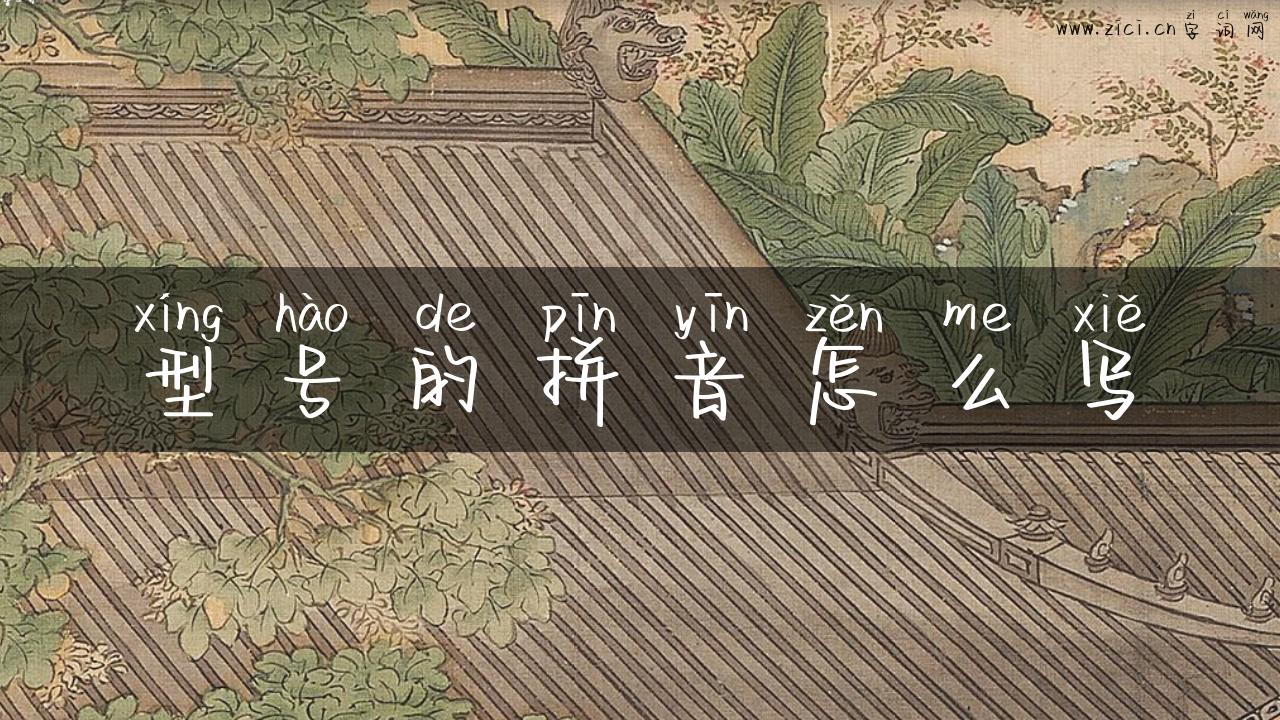 zì cí wǎng
www.zici.cn 字词网
xíng hào de pīn yīn zěn me xiě
型号的拼音怎么写